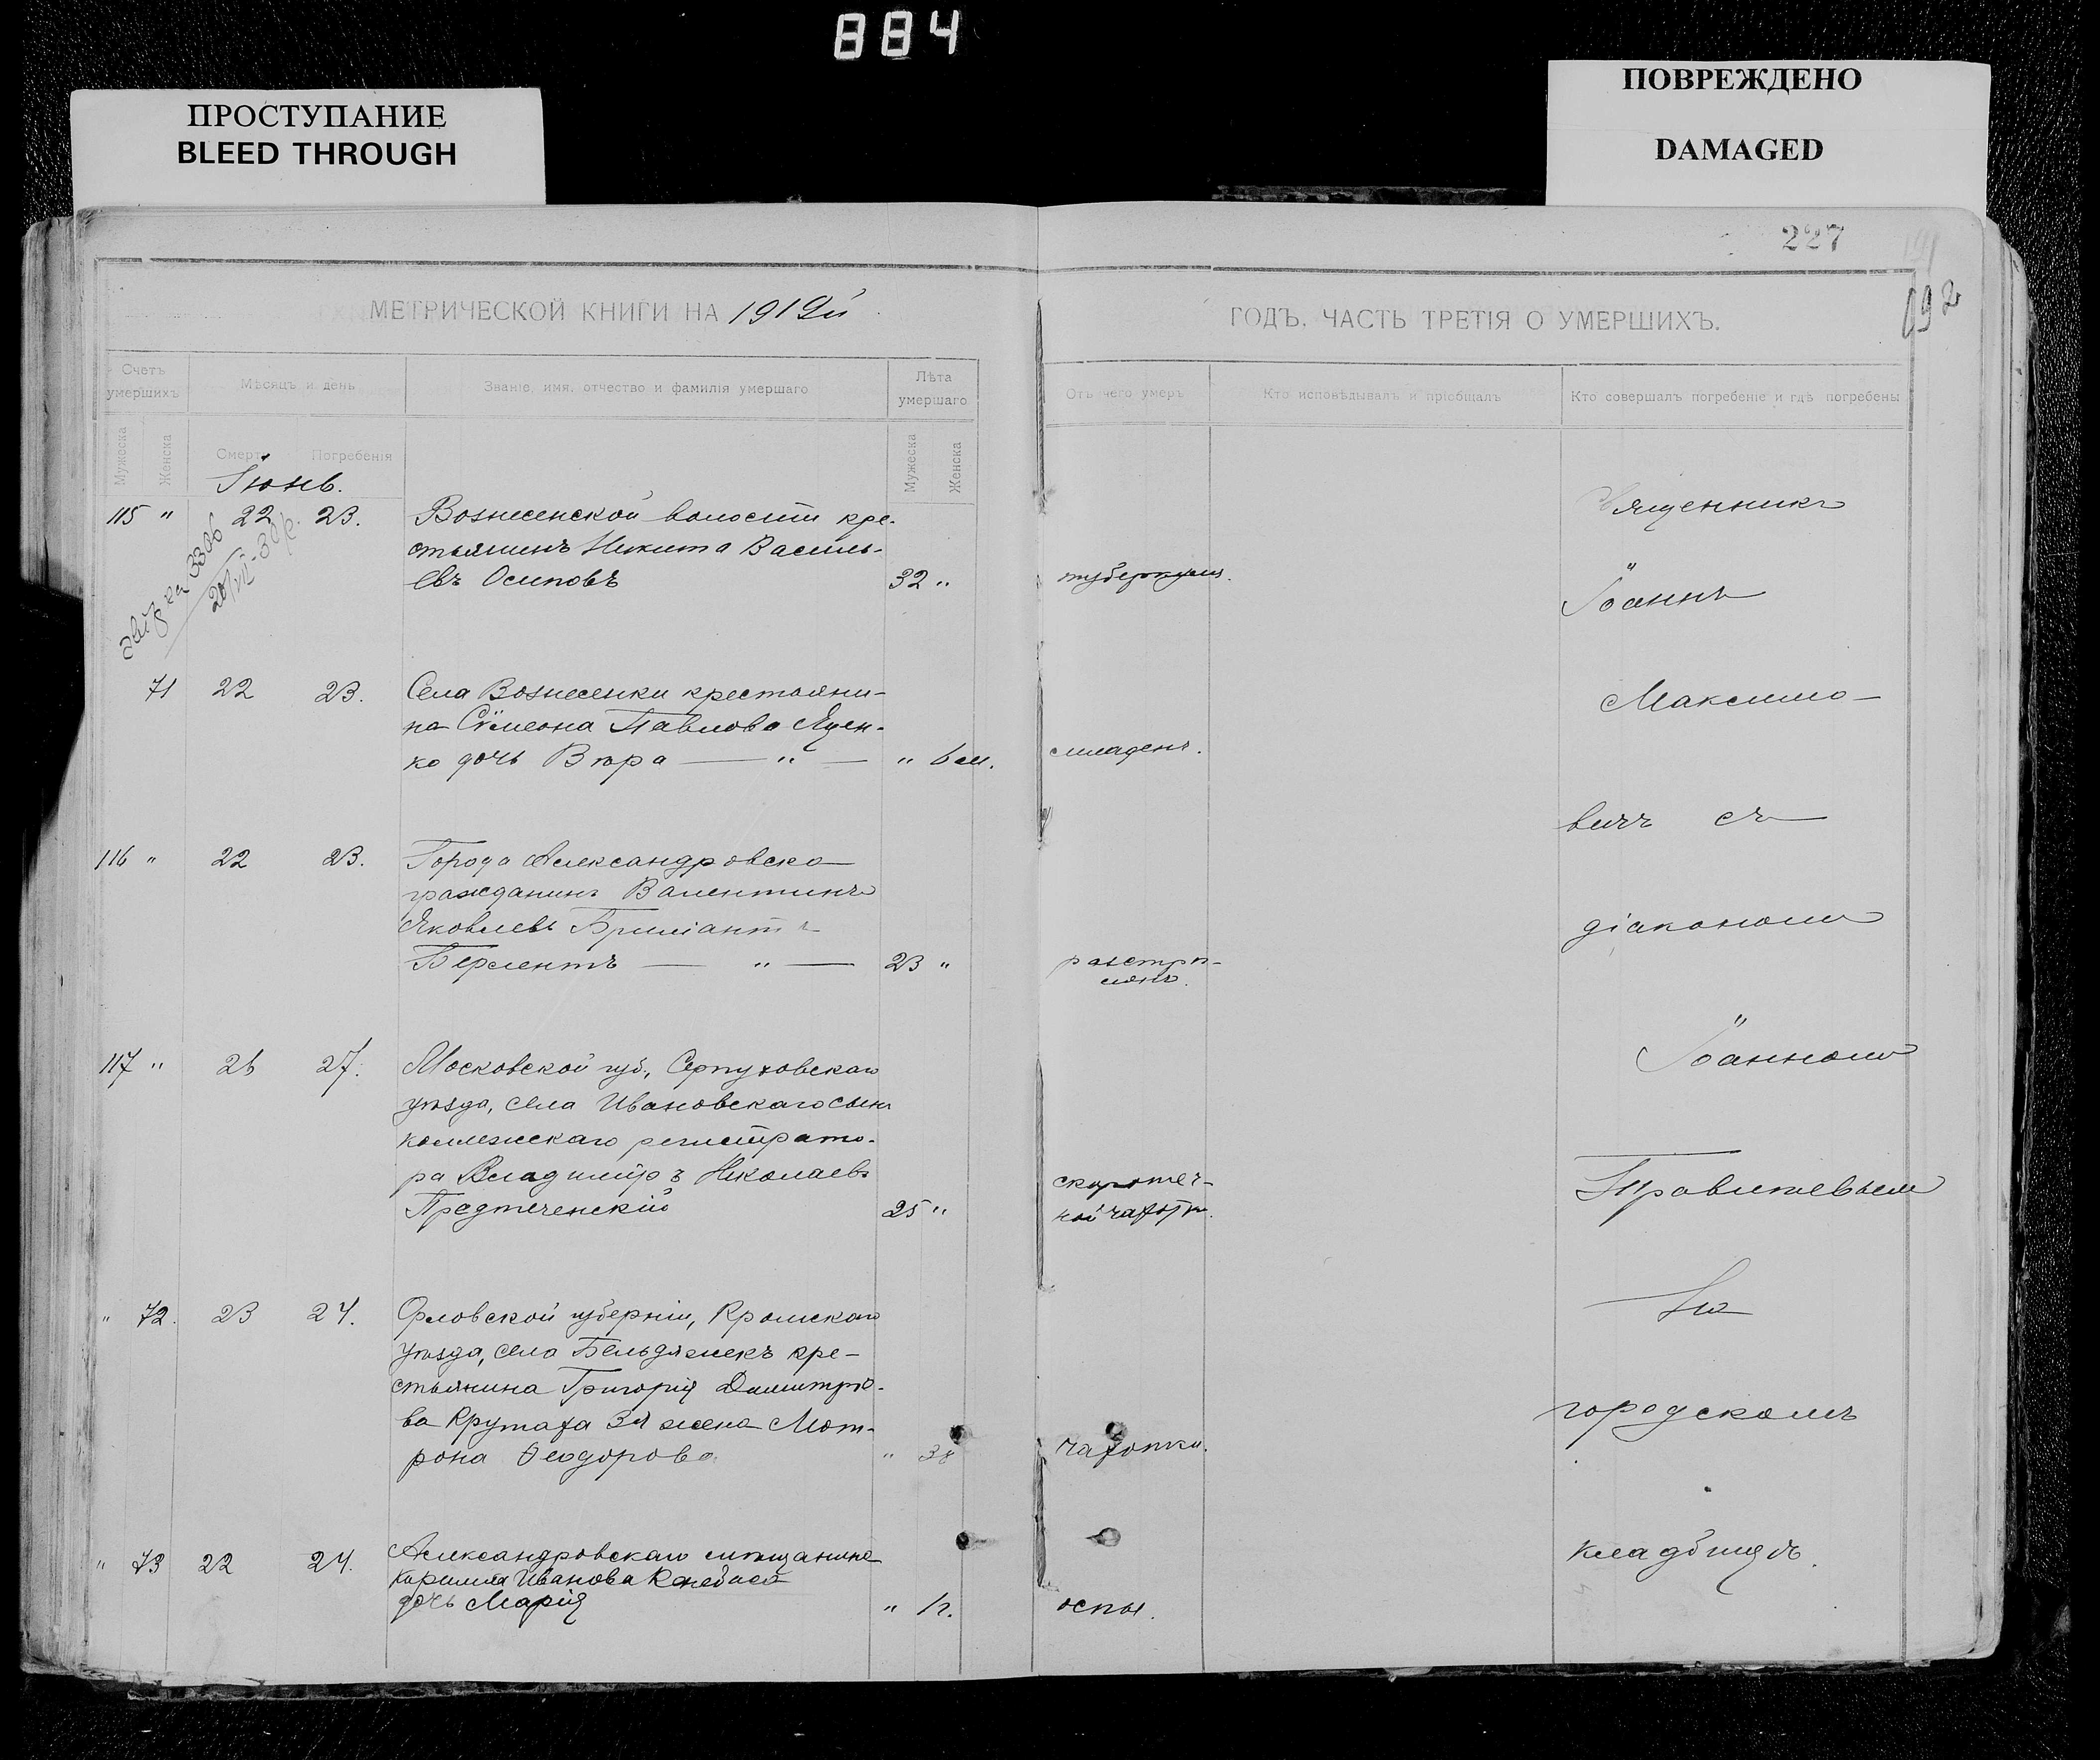 884
ПРОСТУПАНИЕ
BLEED THROUGH
ПОВРЕЖДЕНО
DAMAGED
227
192
МЕТРИЧЕСКОЙ КНИГИ НА 1912й
ГОДЪ, ЧАСТЬ ТРЕТІЯ О УМЕРШИХЪ.
Счетъ умершихъ
Мѣсяцъ и день
Званіе, имя, отчество и фамилія умершаго
Лѣта умершаго
Отъ чего умеръ
Кто исповѣдывалъ и пріобщалъ
Кто совершалъ погребеніе и гдѣ погребены
Мужеска
Женска
Смерти
Погребенія
Мужеска
Женска
Іюнь.
115 " 22 23. Вознесенской волости кре-
стьянинъ Никита Василь-
евъ Осиповъ 32 " туберкулез.
3306
71 22 23. Села Вознесенки крестьяни-
на Сѵмеона Павлова Яцен-
ко дочь Вѣра — " — " 6 м. младенч.
116 " 22 23. Города Александровска
гражданинъ Валентинъ
Яковлевъ Бриліантъ
Берлентъ — " — 23 " разстрѣ-
лянъ.
117 " 26 27. Московской губ., Серпуховскаго
уѣзда, села Ивановскаго сынъ
коллежскаго регистрато-
ра Владиміръ Николаевъ
Предтеченскій 25 " скоротеч-
ной чахотк.
" 72. 23 24. Орловской губерніи, Кромскаго
уѣзда, села Бельдяжекъ кре-
стьянина Григорія Димитріе-
ва 3я жена Мат-
рона Ѳеодорова " 38 чахотки.
" 73 22 24. Александровскаго мѣщанина
Кирилла Иванова
дочь Марія " 1 г. оспы.
Священникъ
Іоаннъ
Максимо-
вичъ съ
діакономъ
Іоанномъ
На
городскомъ
кладбищѣ.